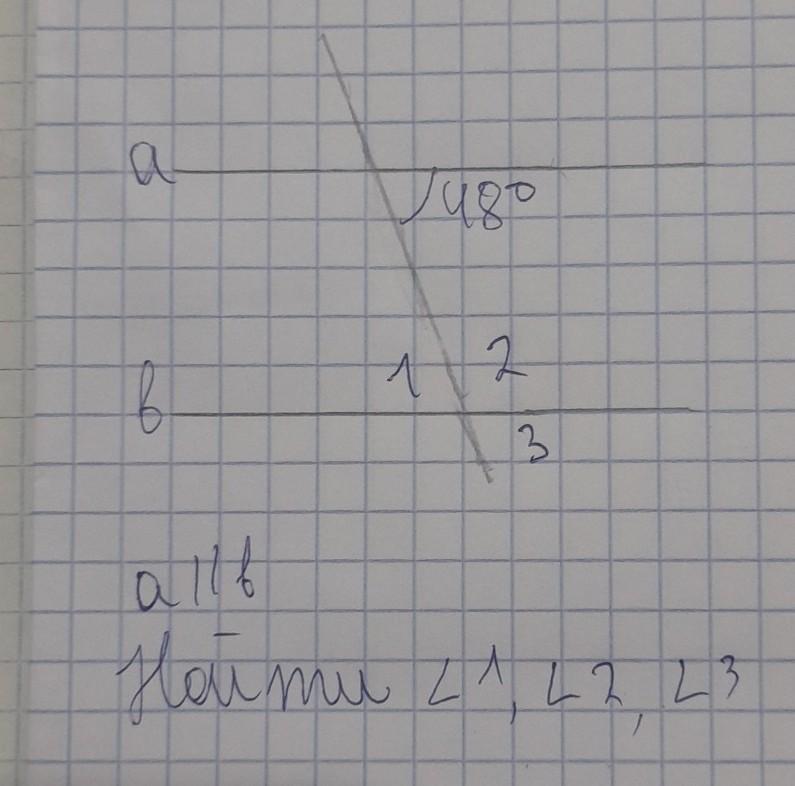 a
48°
1 2
в
3
a||в
Найти ∠1, ∠2, ∠3